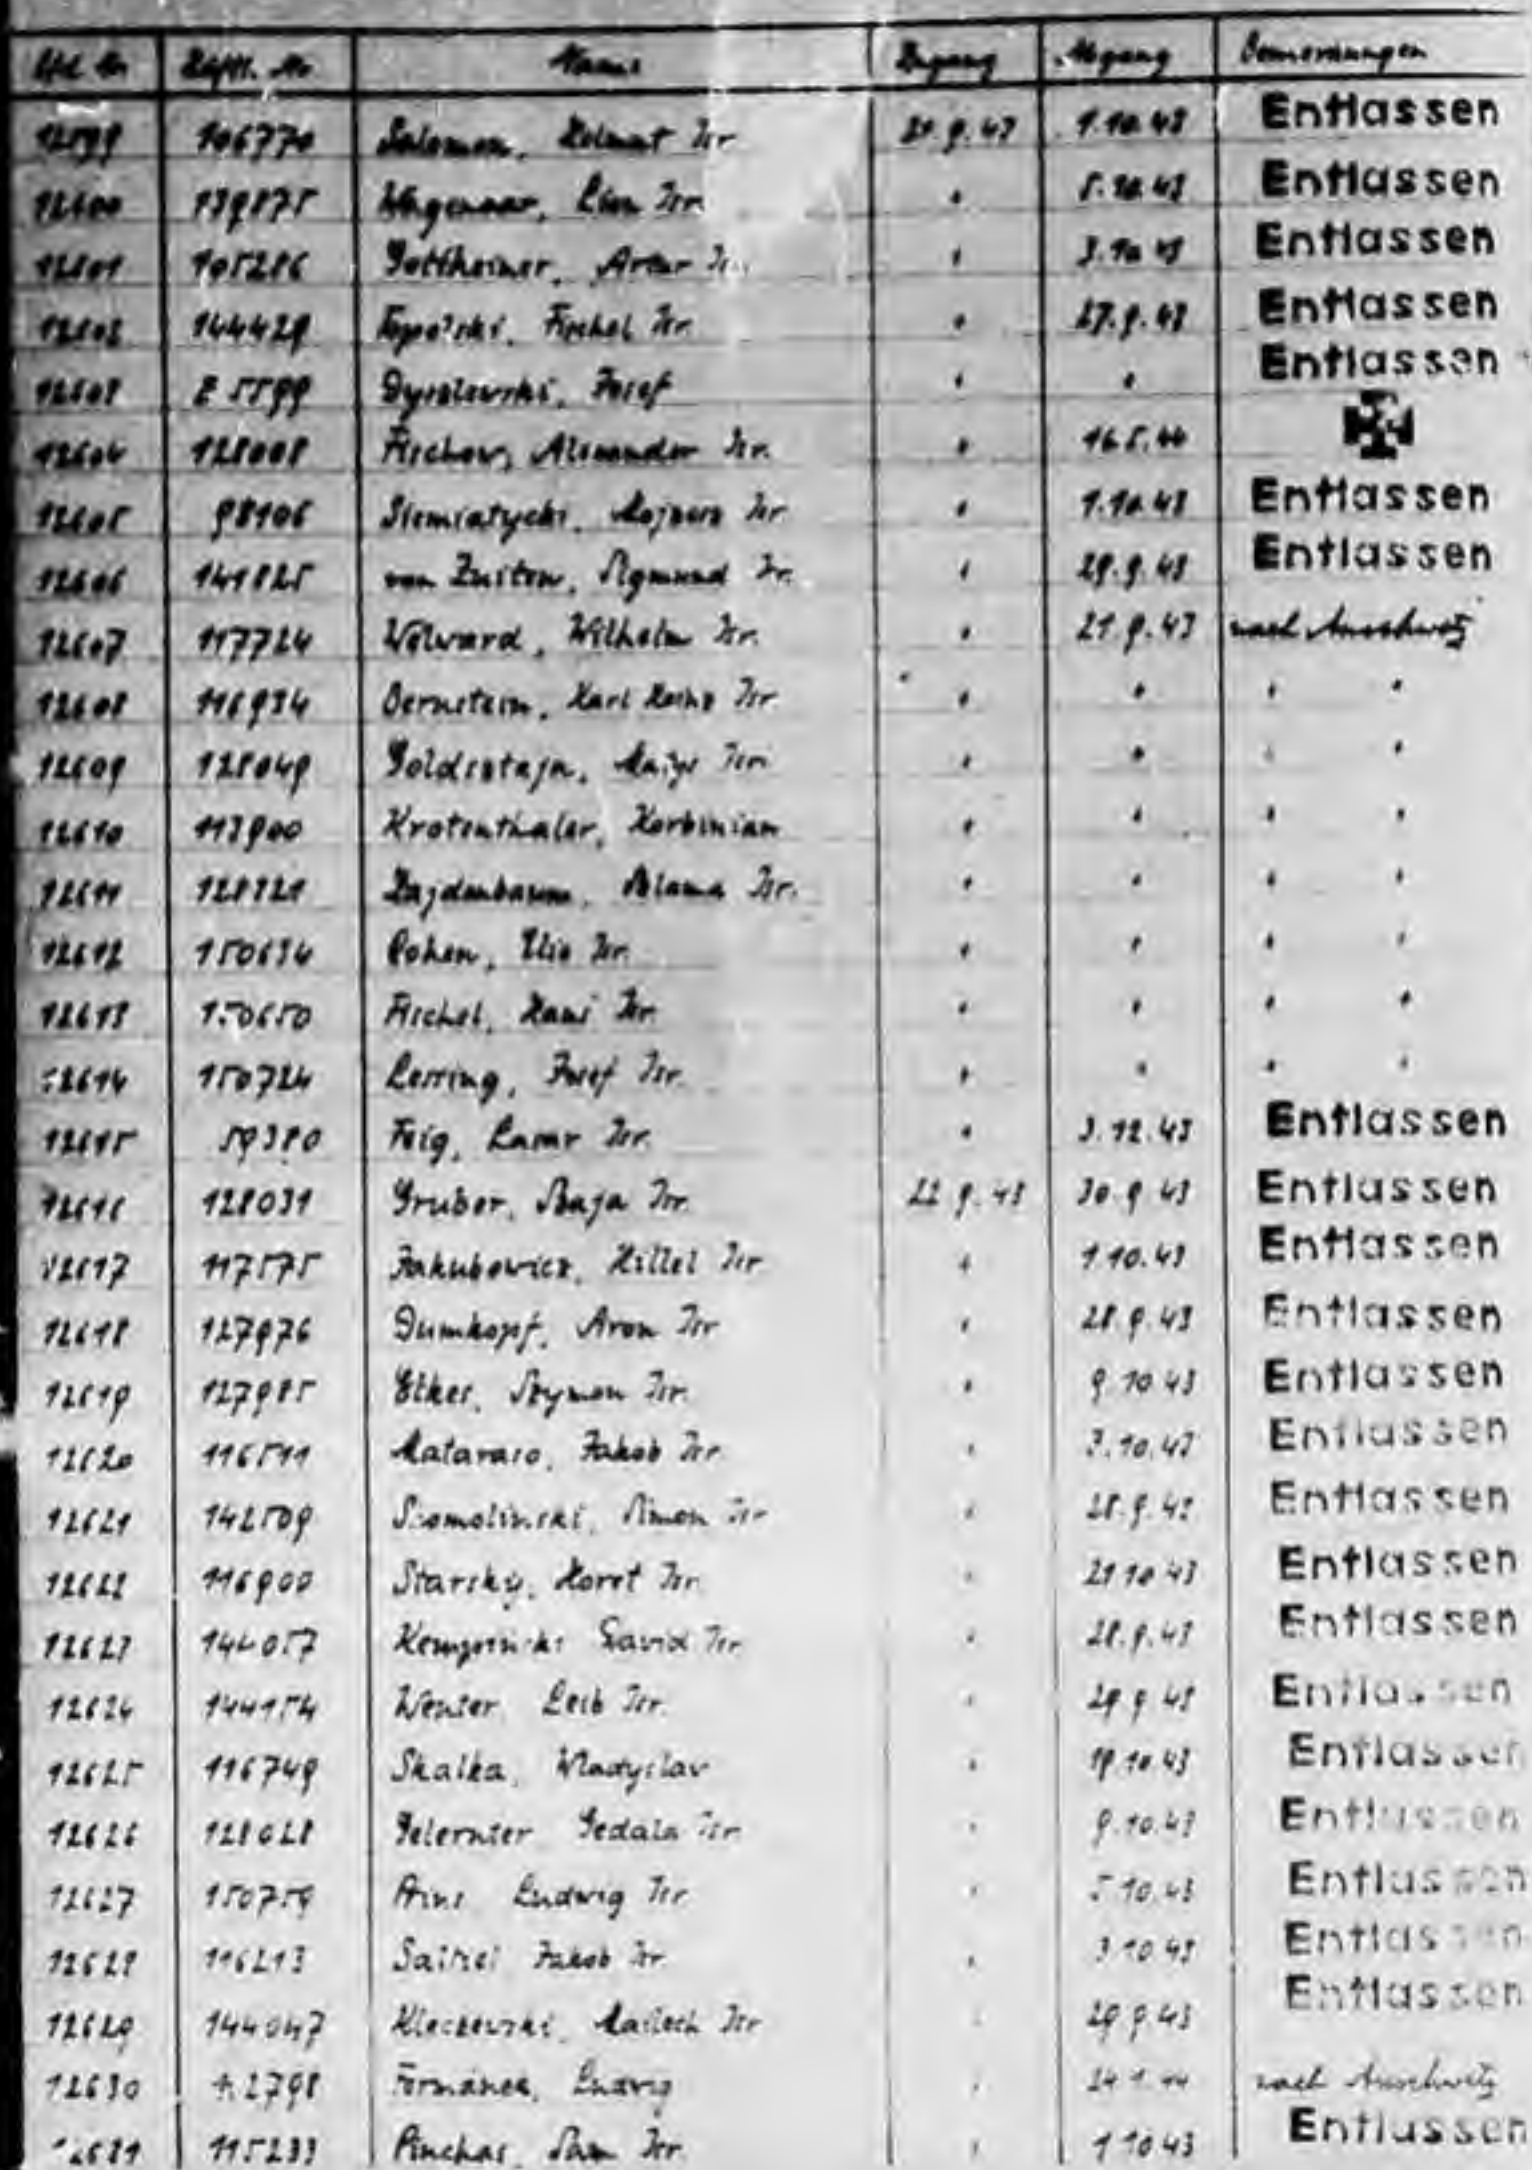 Lfd. Nr. Häftl. Nr. Name Zugang Abgang Bemerkungen
12599 106770 Salomon, Helmut Isr. 21.9.43 1.10.43 Entlassen
12600 139875 Wagenaar, Isr. " 5.10.43 Entlassen
12601 105286 Gottheimer, Artur " 3.10.43 Entlassen
12602 144429 Fischel Isr. " 27.9.43 Entlassen
12603 Z 5599 Josef " " Entlassen
12604 128008 Fischow, Alexander Isr. " 16.5.44
12605 98106 Siemiatycki, Isr. " 1.10.43 Entlassen
12606 141825 van Zuiten, Sigmund Isr. " 29.9.43 Entlassen
12607 117724 Wolward, Wilhelm Isr. " 21.9.43 nach Auschwitz
12608 116934 Bernstein, Karl Heinz Isr. " " " "
12609 128049 Goldsztajn, Isr. " " " "
12610 113900 Krotenthaler, Korbinian " " " "
12611 128821 Szlama Isr. " " " "
12612 150634 Cohen, Elio Isr. " " " "
12613 150650 Fischel, Hans Isr. " " " "
12614 150724 Lerring, Josef Isr. " " " "
12615 59380 Feig, Lazar Isr. " 3.12.43 Entlassen
12616 128031 Gruber, Isr. 22.9.43 30.9.43 Entlassen
12617 117575 Jakubowicz, Hillel Isr. " 1.10.43 Entlassen
12618 127976 Dumkopf, Aron Isr. " 28.9.43 Entlassen
12619 127985 Etkes, Szymon Isr. " 9.10.43 Entlassen
12620 116511 Mataraso, Jakob Isr. " 3.10.43 Entlassen
12621 142509 Simon Isr. " 28.9.43 Entlassen
12622 116900 Starsky, Horst Isr. " 21.10.43 Entlassen
12623 144057 David Isr. " 28.9.43 Entlassen
12624 144154 Leib Isr. " 29.9.43 Entlassen
12625 116749 Skalka, Wladyslav " 19.10.43 Entlassen
12626 128028 Gelernter Gedala Isr. " 9.10.43 Entlassen
12627 150759 Ludwig Isr. " 5.10.43 Entlassen
12628 116213 Jakob Isr. " 3.10.43 Entlassen
12629 144047 Kleczewski, Isr. " 29.9.43 Entlassen
12630 2798 Formanek, Ludwig " 24.1.44 nach Auschwitz
12631 115233 Pinchas, Sam Isr. " 1.10.43 Entlassen